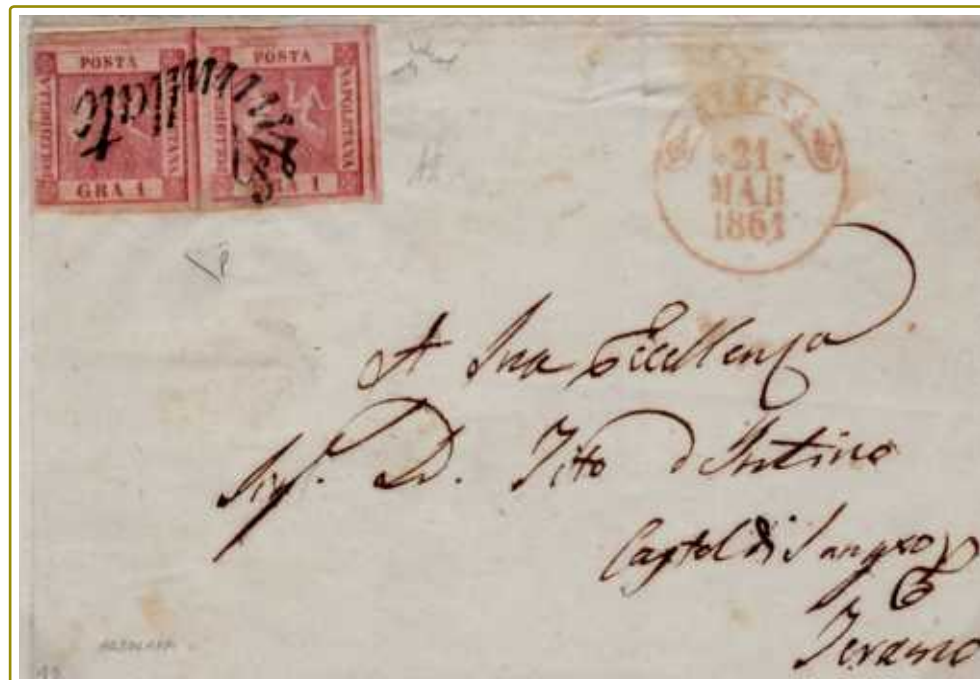 POSTA
BOLLO DELLA
NAPOLETANA
GRA 1
POSTA
BOLLO DELLA
NAPOLETANA
GRA 1
Annullato
21
MAR
1861
A Sua Eccellenza
Sig. D. Tito d'Antino
Castel di Sangro
Teramo